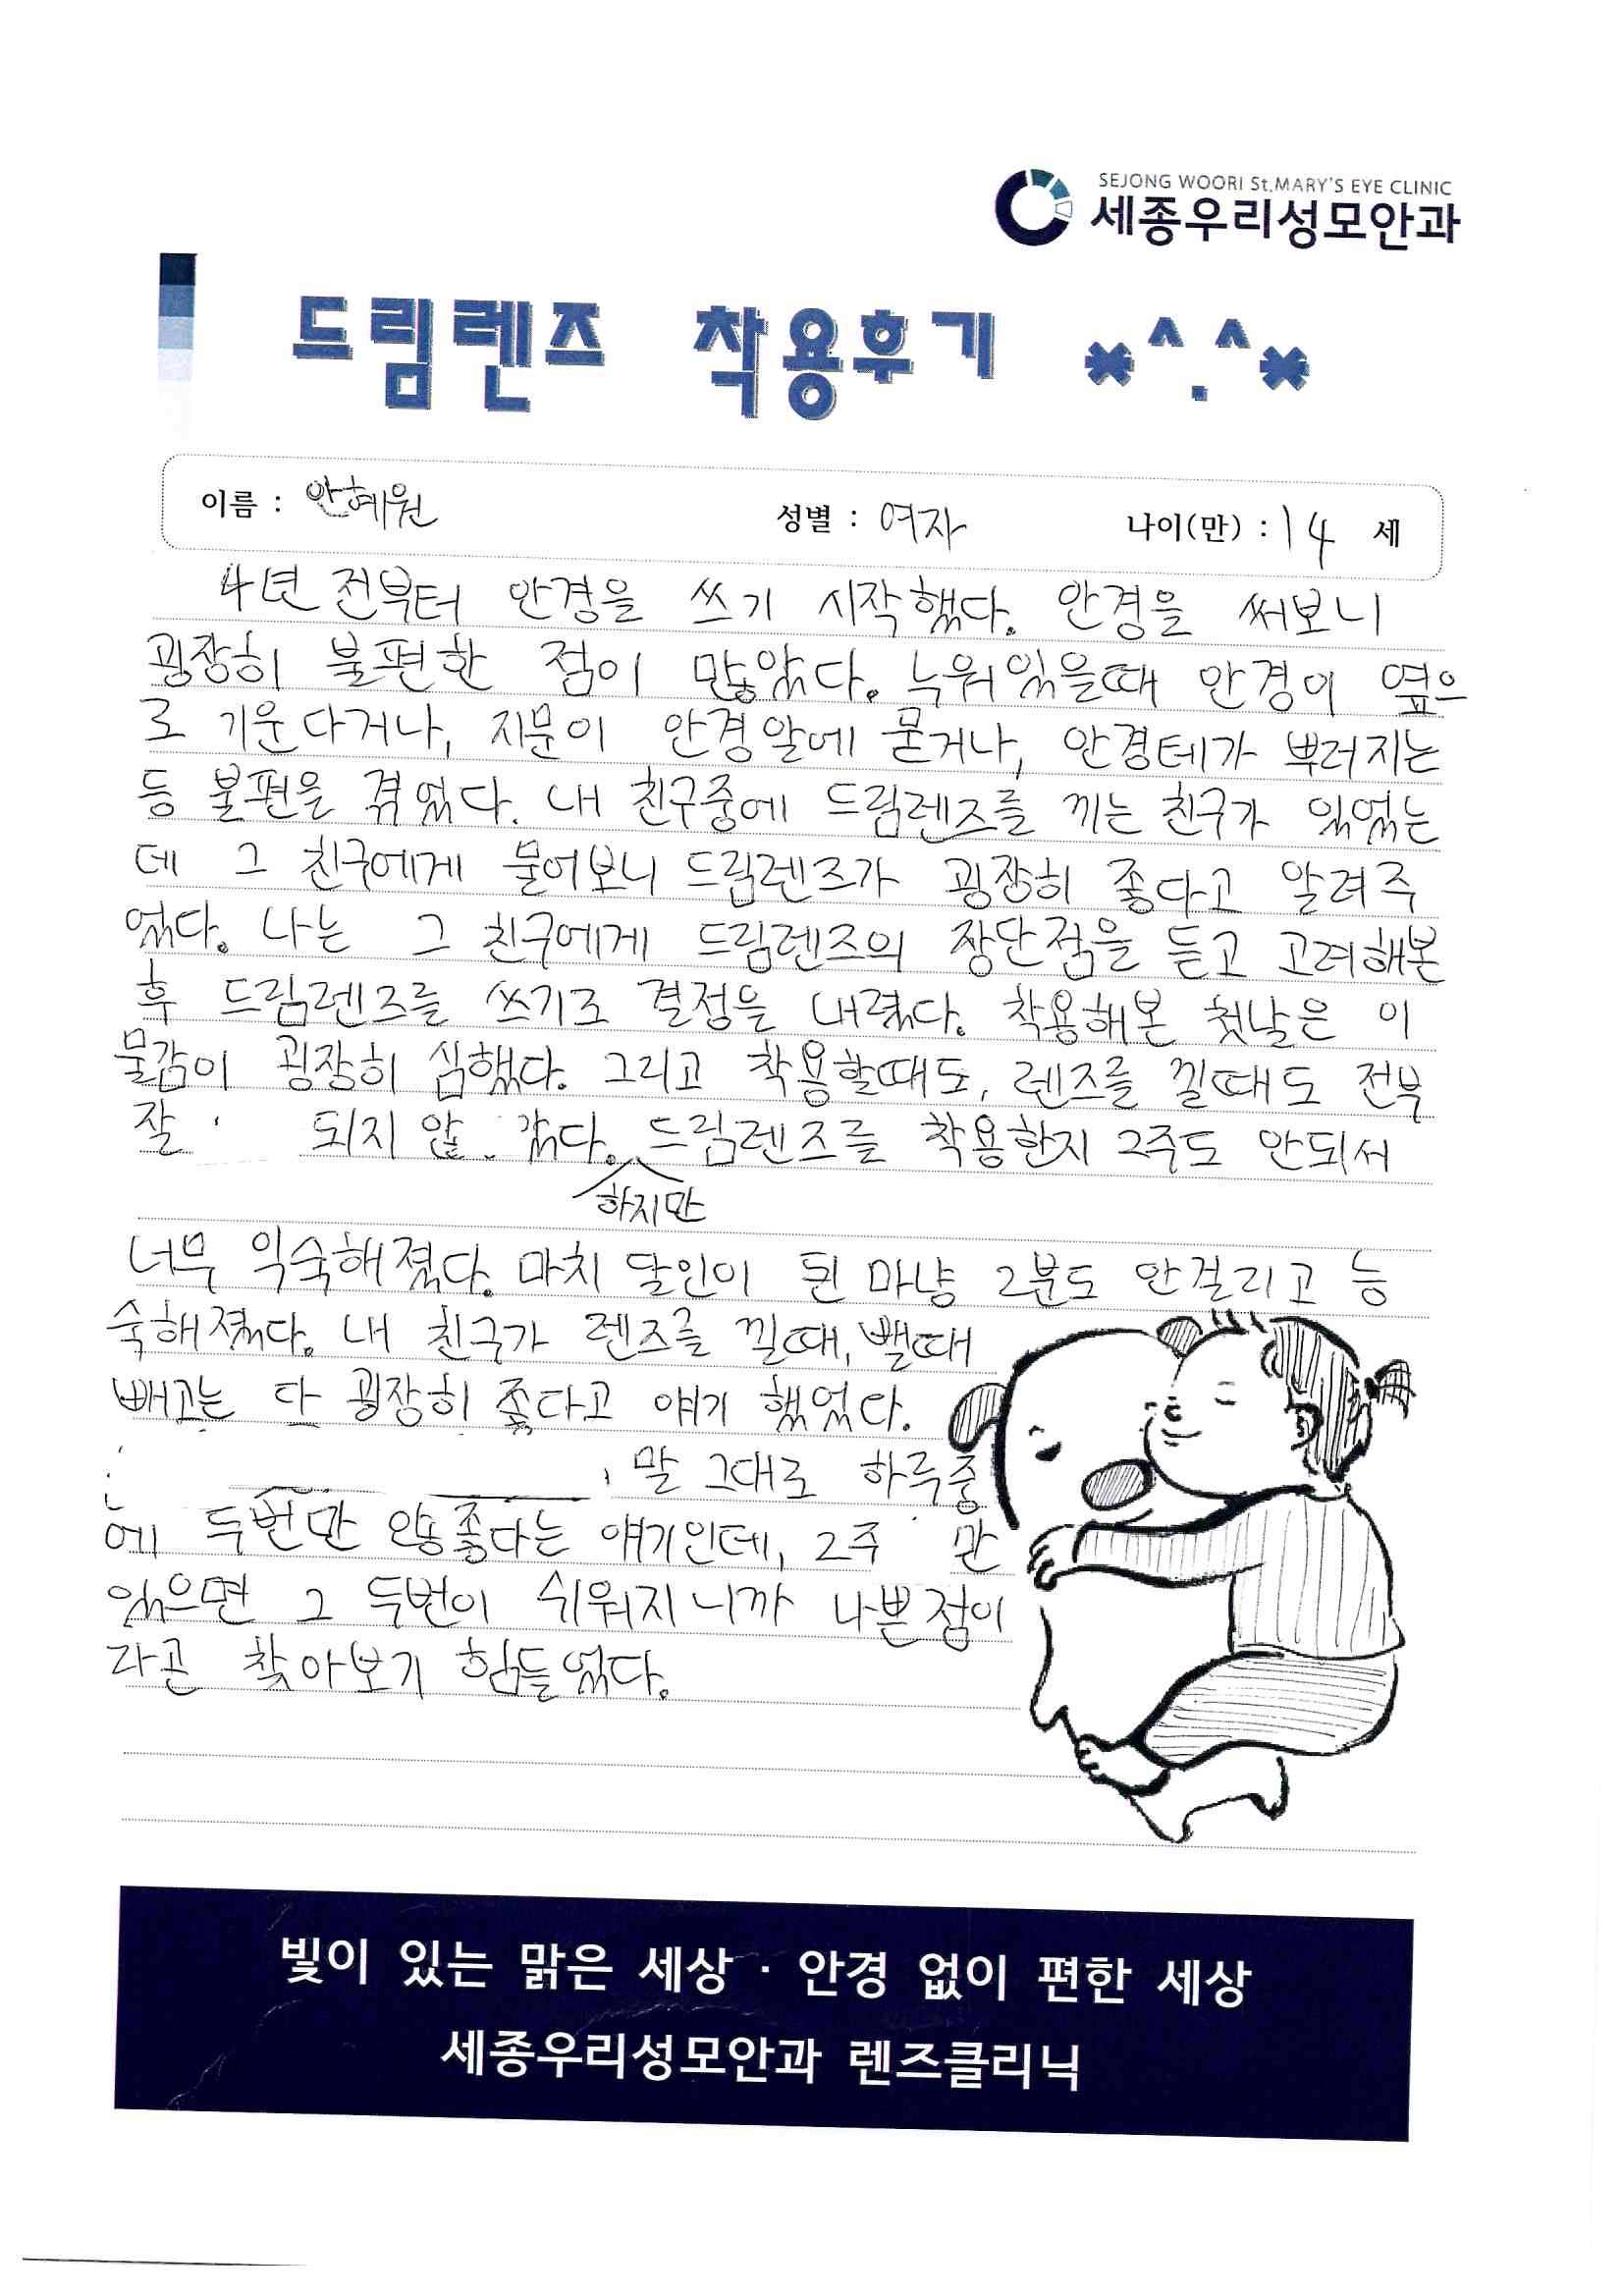 SEJONG WOORI St.MARY'S EYE CLINIC
세종우리성모안과
드림렌즈 착용후기 *^.^*
이름 : 안혜원 성별 : 여자 나이(만) : 14 세
4년 전부터 안경을 쓰기 시작했다. 안경을 써보니
굉장히 불편한 점이 많았다. 누워있을때 안경이 옆으
로 기운다거나, 지문이 안경알에 묻거나, 안경테가 부러지는
등 불편을 겪었다. 내 친구중에 드림렌즈를 끼는 친구가 있었는
데 그 친구에게 물어보니 드림렌즈가 굉장히 좋다고 알려주
었다. 나는 그 친구에게 드림렌즈의 장단점을 듣고 고려해본
후 드림렌즈를 쓰기로 결정을 내렸다. 착용해본 첫날은 이
물감이 굉장히 심했다. 그리고 착용할때도, 렌즈를 낄때도 전부
잘 되지 않았다. 드림렌즈를 착용한지 2주도 안되서
하지만
너무 익숙해졌다. 마치 달인이 된 마냥 2분도 안걸리고 능
숙해졌다. 내 친구가 렌즈를 낄때, 뺄때
빼고는 다 굉장히 좋다고 얘기 했었다.
말 그대로 하루중
에 두번만 안좋다는 얘기인데, 2주 만
있으면 그 두번이 쉬워지니까 나쁜점이
라곤 찾아보기 힘들었다.
빛이 있는 맑은 세상 · 안경 없이 편한 세상
세종우리성모안과 렌즈클리닉